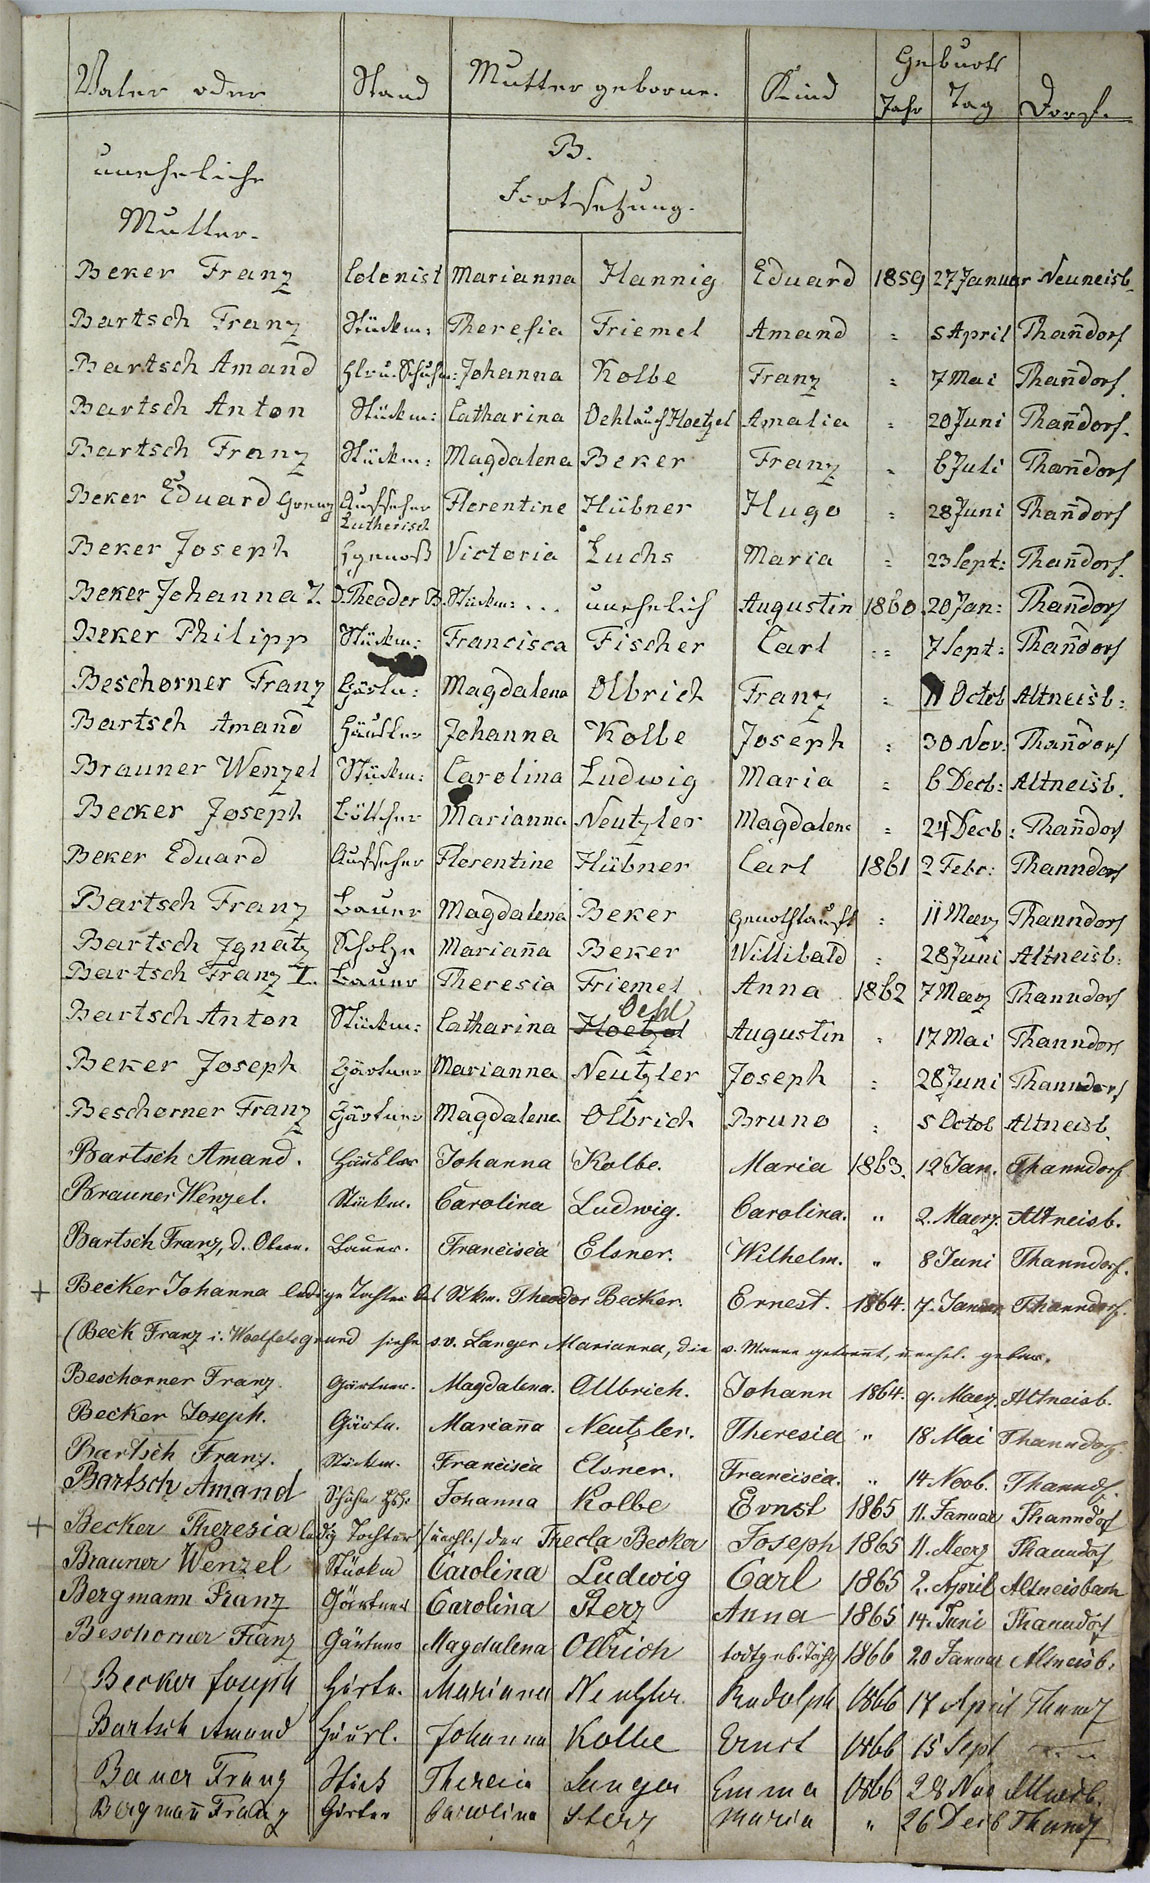 Vater oder Stand Mutter geborne. Kind Geburts Jahr Tag Dorf.
uneheliche B.
Mutter. Fortsetzung.
Beker Franz Colonist Marianna Hannig Eduard 1859 27 Januar Neuneisb.
Bartsch Franz Stückm: Theresia Friemel Amand = 5 April Thañdorf
Bartsch Amand Johanna Kolbe Franz = 7 Mai Thañdorf.
Bartsch Anton Stückm: Catharina Oehl auch Hoetzel Amalia = 20 Juni Thañdorf.
Bartsch Franz Stückm: Magdalena Beker Franz = 6 Juli Thañdorf
Beker Eduard Grenz Aufseher Lutherisch Florentine Hübner Hugo = 28 Juni Thañdorf
Beker Joseph Hgenoß Victoria Luchs Maria = 23 Sept: Thañdorf.
Beker Johanna T. D. Theodor B. Stückm: ... unehelich Augustin 1860 20 Jan: Thañdorf
Beker Philipp Stückm: Francisca Fischer Carl = 7 Sept: Thañdorf
Beschorner Franz Gärtn: Magdalena Olbrich Franz = 11 Octob Altneisb:
Bartsch Amand Häusler Johanna Kolbe Joseph = 30 Nov: Thañdorf
Brauner Wenzel Stückm: Carolina Ludwig Maria = 6 Decb: Altneisb.
Becker Joseph Böttcher Marianna Neutzler Magdalena = 24 Decb: Thañdorf
Beker Eduard Aufseher Florentine Hübner Carl 1861 2 Febr: Thanndorf
Bartsch Franz Bauer Magdalena Beker Genothtauft = 11 Maerz Thanndorf
Bartsch Ignatz Scholze Mariaña Beker Willibald = 28 Juni Altneisb:
Bartsch Franz I. Bauer Theresia Friemel Anna 1862 7 Maerz Thanndorf
Bartsch Anton Stückm: Catharina Hoetzel Oehl Augustin = 17 Mai Thanndorf
Beker Joseph Gärtner Marianna Neutzler Joseph = 28 Juni Thanndorf
Beschorner Franz Gärtner Magdalena Olbrich Bruno = 5 Octob Altneisb.
Bartsch Amand. Häusler Johanna Kolbe. Maria 1863. 12 Jan. Thanndorf
Brauner Wenzel. Stückm. Carolina Ludwig. Carolina. " 2. Maerz. Altneisb.
Bartsch Franz, d. Obere. Bauer. Francisca Elsner. Wilhelm. " 8 Juni Thanndorf.
+ Becker Johanna ledige Tochter des Stkm. Theodor Becker. Ernest. 1864. 7. Januar Thanndorf.
(Beck Franz i. Woelfelsgrund siehe s.v. Langer Marianna, die v. Manne getrennt, unehel. gebar.
Beschorner Franz. Gärtner. Magdalena. Ollbrich. Johann 1864. 9. Maerz. Altneisb.
Becker Joseph. Gärtn. Mariaña Neutzler. Theresia " 18 Mai Thanndorf.
Bartsch Franz. Stückm. Francisca Elsner. Francisca. " 14. Novb. Thanndf.
Bartsch Amand Johanna Kolbe Ernst 1865 11. Januar Thanndorf
+ Becker Theresia ledig Tochter /unehl./ der Thecla Becker Joseph 1865 11. Maerz Thanndorf
Brauner Wenzel Stückm Carolina Ludwig Carl 1865 2. April Altneisbach
Bergmann Franz Gärtner Carolina Sterz Anna 1865 14. Juni Thanndorf
Beschorner Franz Gärtner Magdalena Ollrich 1866 20 Januar Altneisb:
Becker Joseph Gärtn. Marianna Neutzler Rudolph 1866 17 April
Bartsch Amand Häusl. Johanna Kolbe Ernst 1866 15 Sept
Bauer Franz Stück Theresia Langer Emma 1866 28 Nov Altneisb.
Bergmañ Franz Gärtner Carolina Sterz Maria " 26 Decb